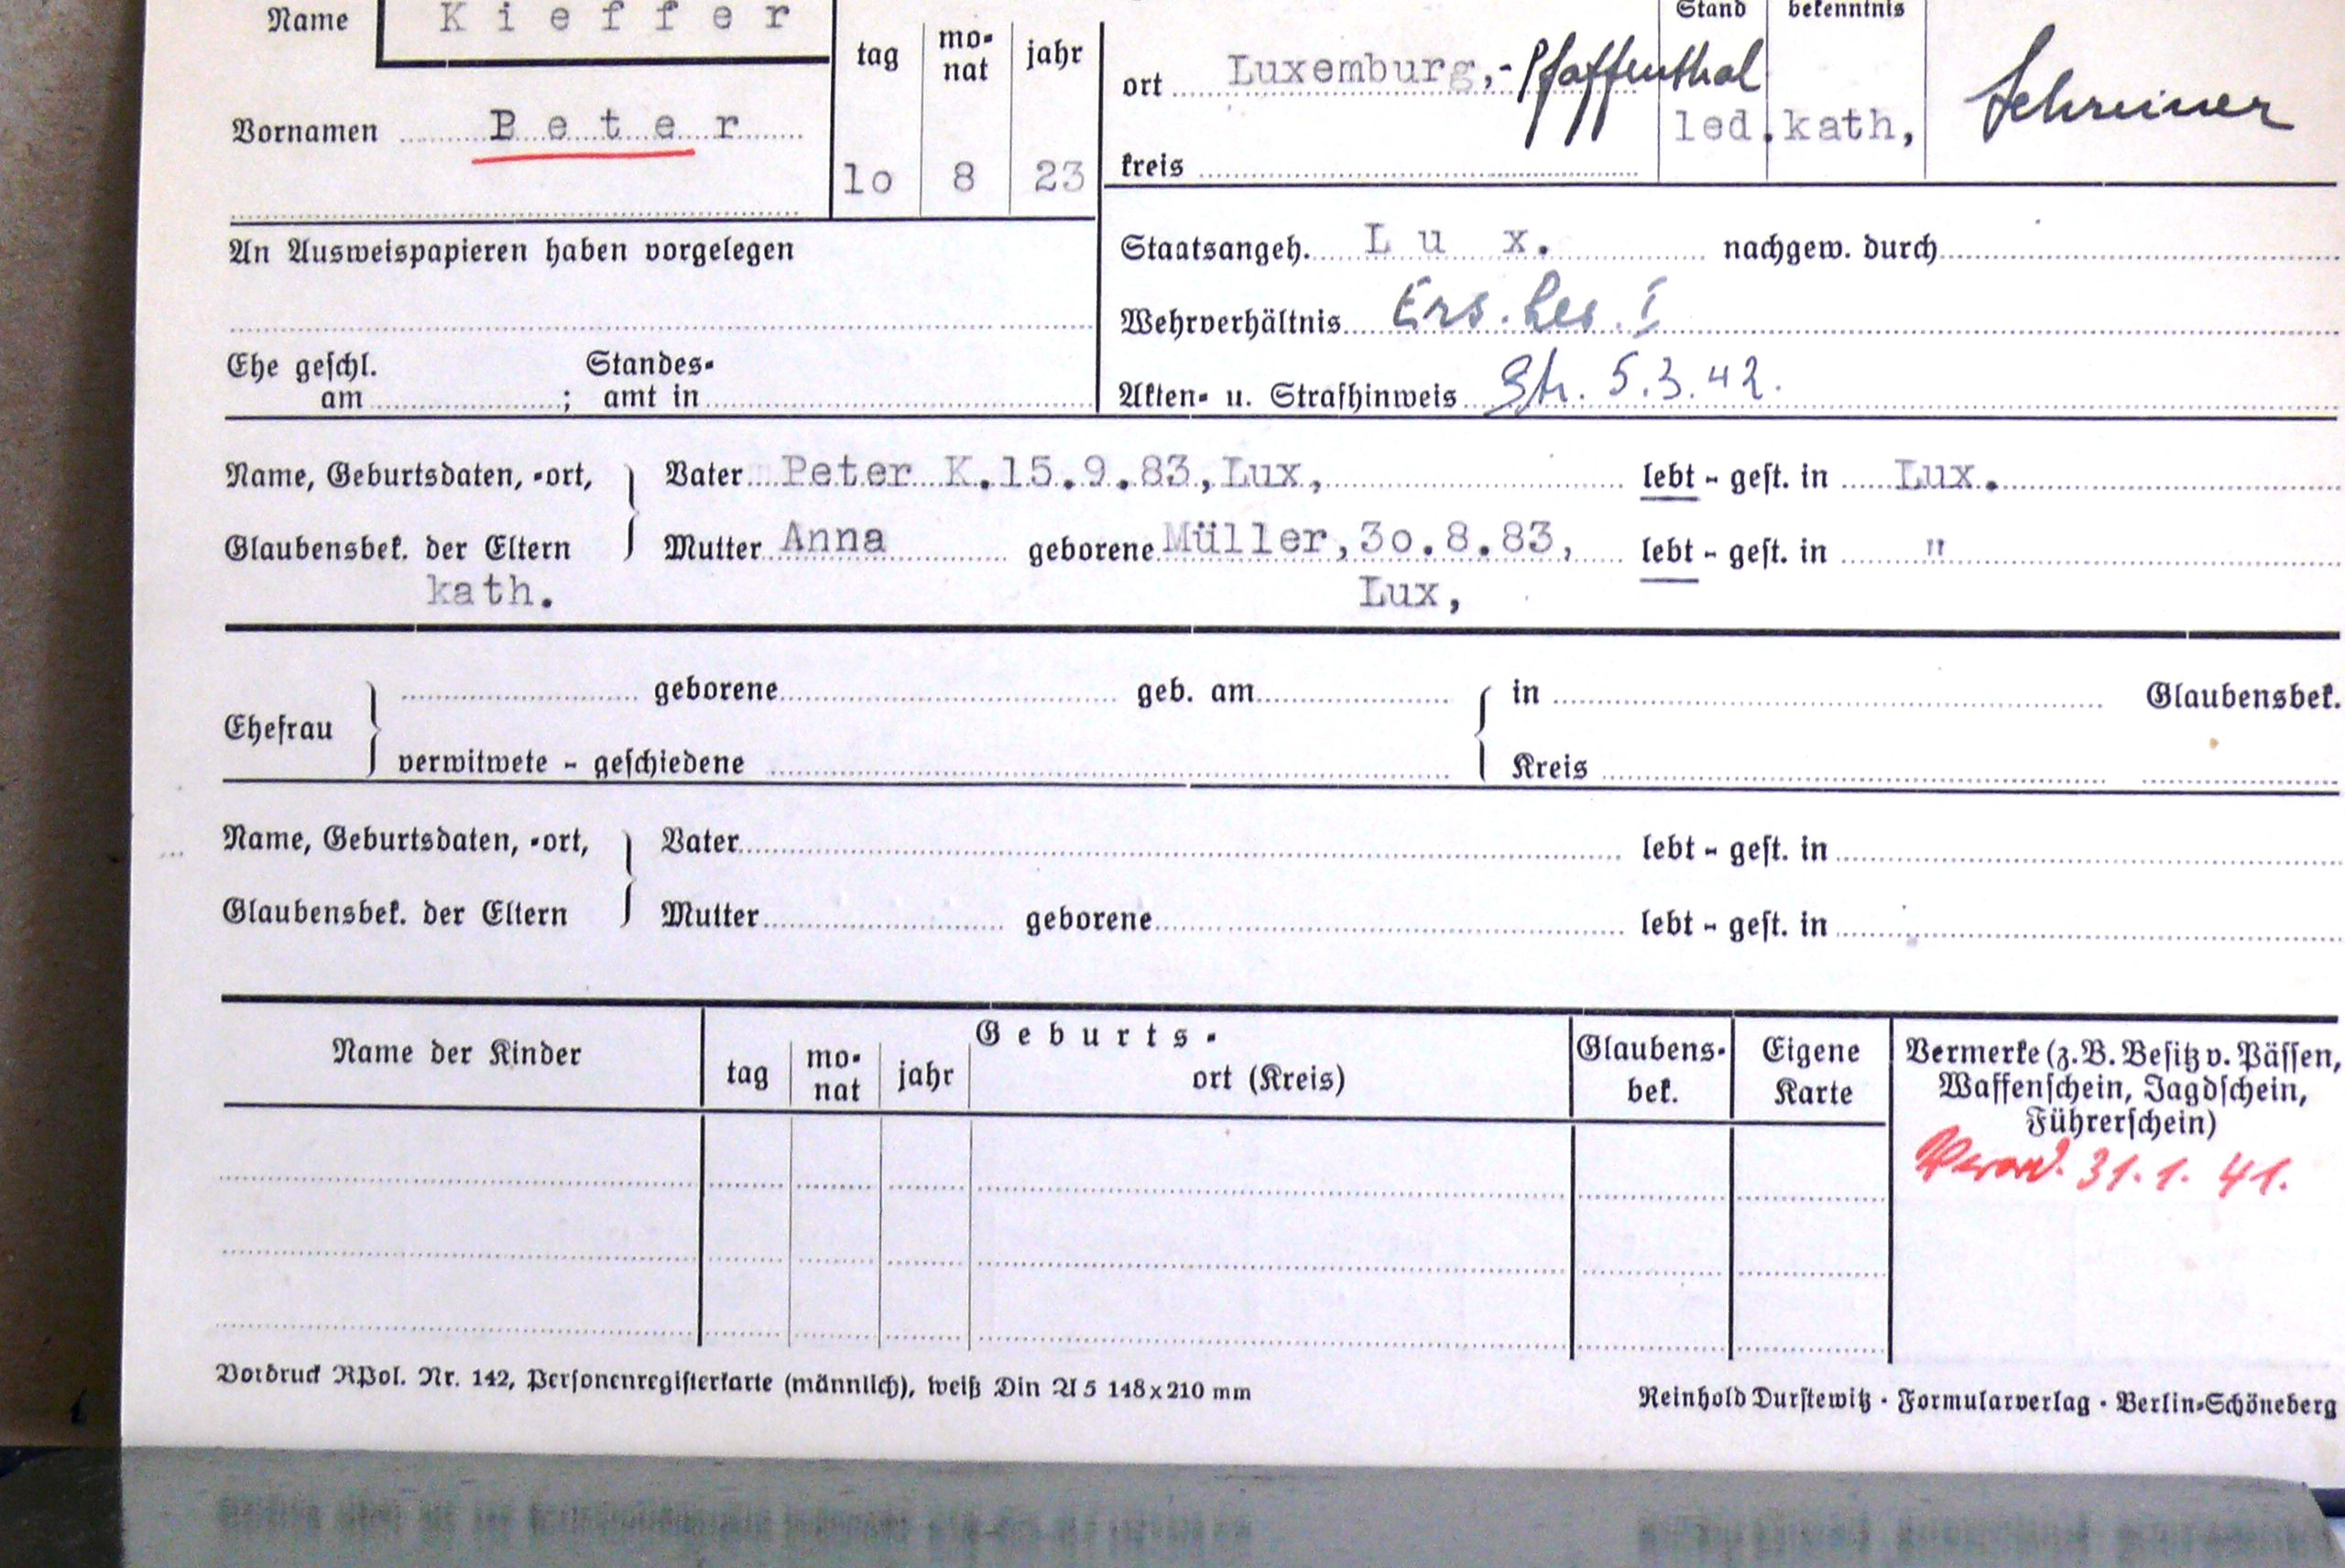 Name K i e f f e r
Stand bekenntnis
tag mo- nat jahr
ort Luxemburg,-Pfaffenthal
Vornamen P e t e r
led. kath, Schreiner
lo 8 23
kreis
An Ausweispapieren haben vorgelegen
Staatsangeh. L u x. nachgew. durch
Wehrverhältnis Ers. Res. I
Ehe geschl. am ; Standes- amt in
Akten- u. Strafhinweis 5.3.42.
Name, Geburtsdaten, -ort, Vater Peter K.15.9.83,Lux, lebt - gest. in Lux.
Glaubensbek. der Eltern Mutter Anna geborene Müller,3o.8.83, lebt - gest. in "
kath. Lux,
geborene geb. am in Glaubensbek.
Ehefrau
verwitwete - geschiedene Kreis
Name, Geburtsdaten, -ort, Vater lebt - gest. in
Glaubensbek. der Eltern Mutter geborene lebt - gest. in
Name der Kinder
G e b u r t s -
tag mo- nat jahr ort (Kreis)
Glaubens- bek.
Eigene Karte
Vermerke (z.B. Besitz v. Pässen,
Waffenschein, Jagdschein,
Führerschein)
31.1.41.
Vordruck RPol. Nr. 142, Personenregisterkarte (männlich), weiß Din A 5 148x210 mm
Reinhold Durstewitz · Formularverlag · Berlin-Schöneberg